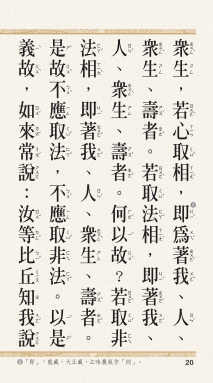 衆生，若心取相，即❶爲著我、人、
衆生、壽者。若取法相，即著我、
人、衆生、壽者。何以故？若取非
法相，即著我、人、衆生、壽者。
是故不應取法，不應取非法。以是
義故，如來常說：汝等比丘知我說
❶「即」：龍藏、大正藏、江味農版作「則」。
20